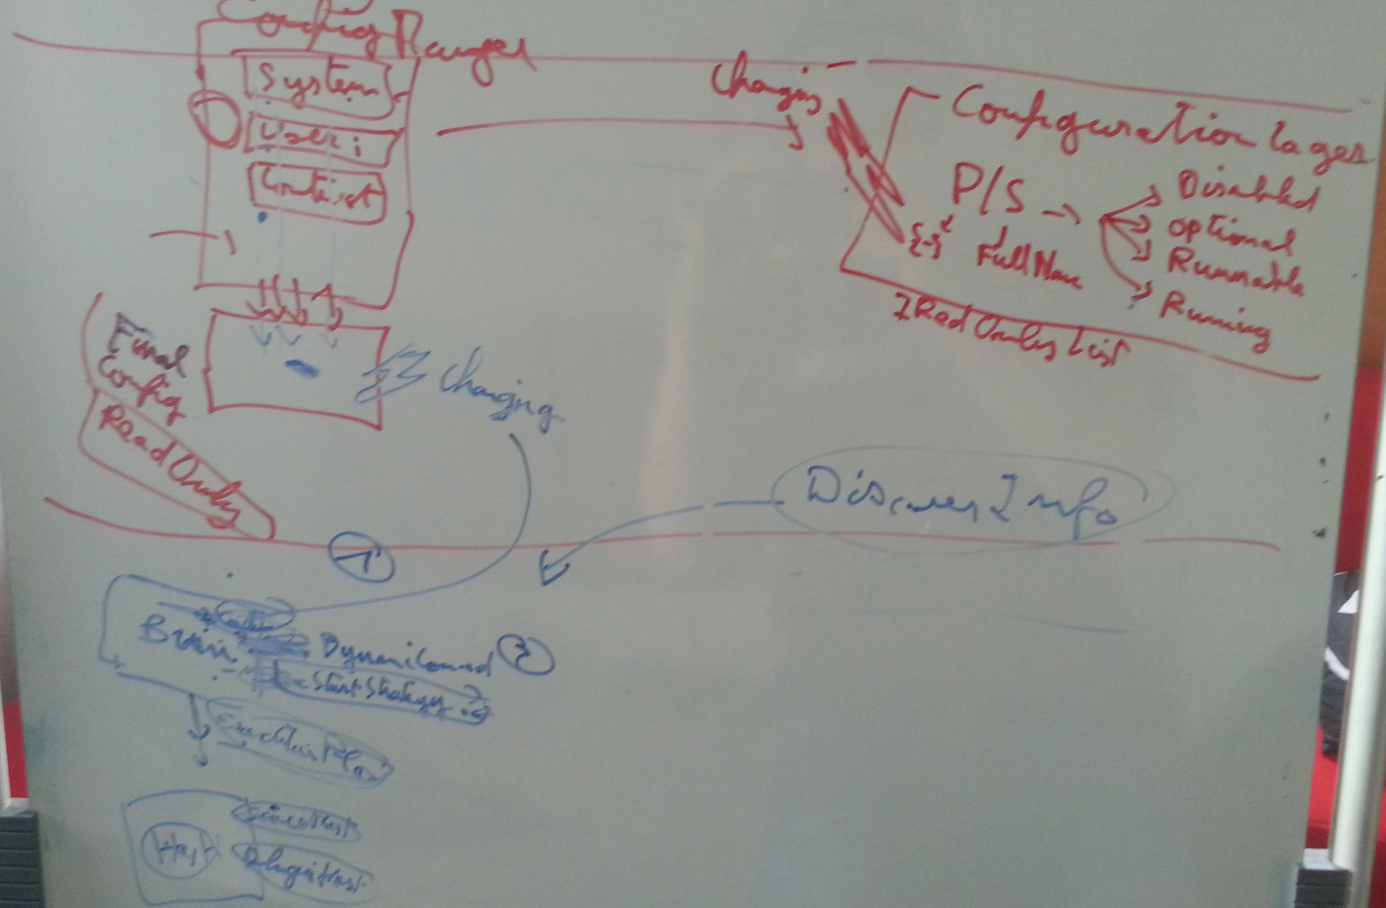 Config Manager
System
User
Context
Changing
Configuration Layer
P/S
Disabled
Optional
Runnable
Runing
Full Name
IReadOnlyList
Final
Config
ReadOnly
Changing
Discover Info
1
Brain
2
StartStrategy
Execution Plan
Host
Service Host
Plugin Host